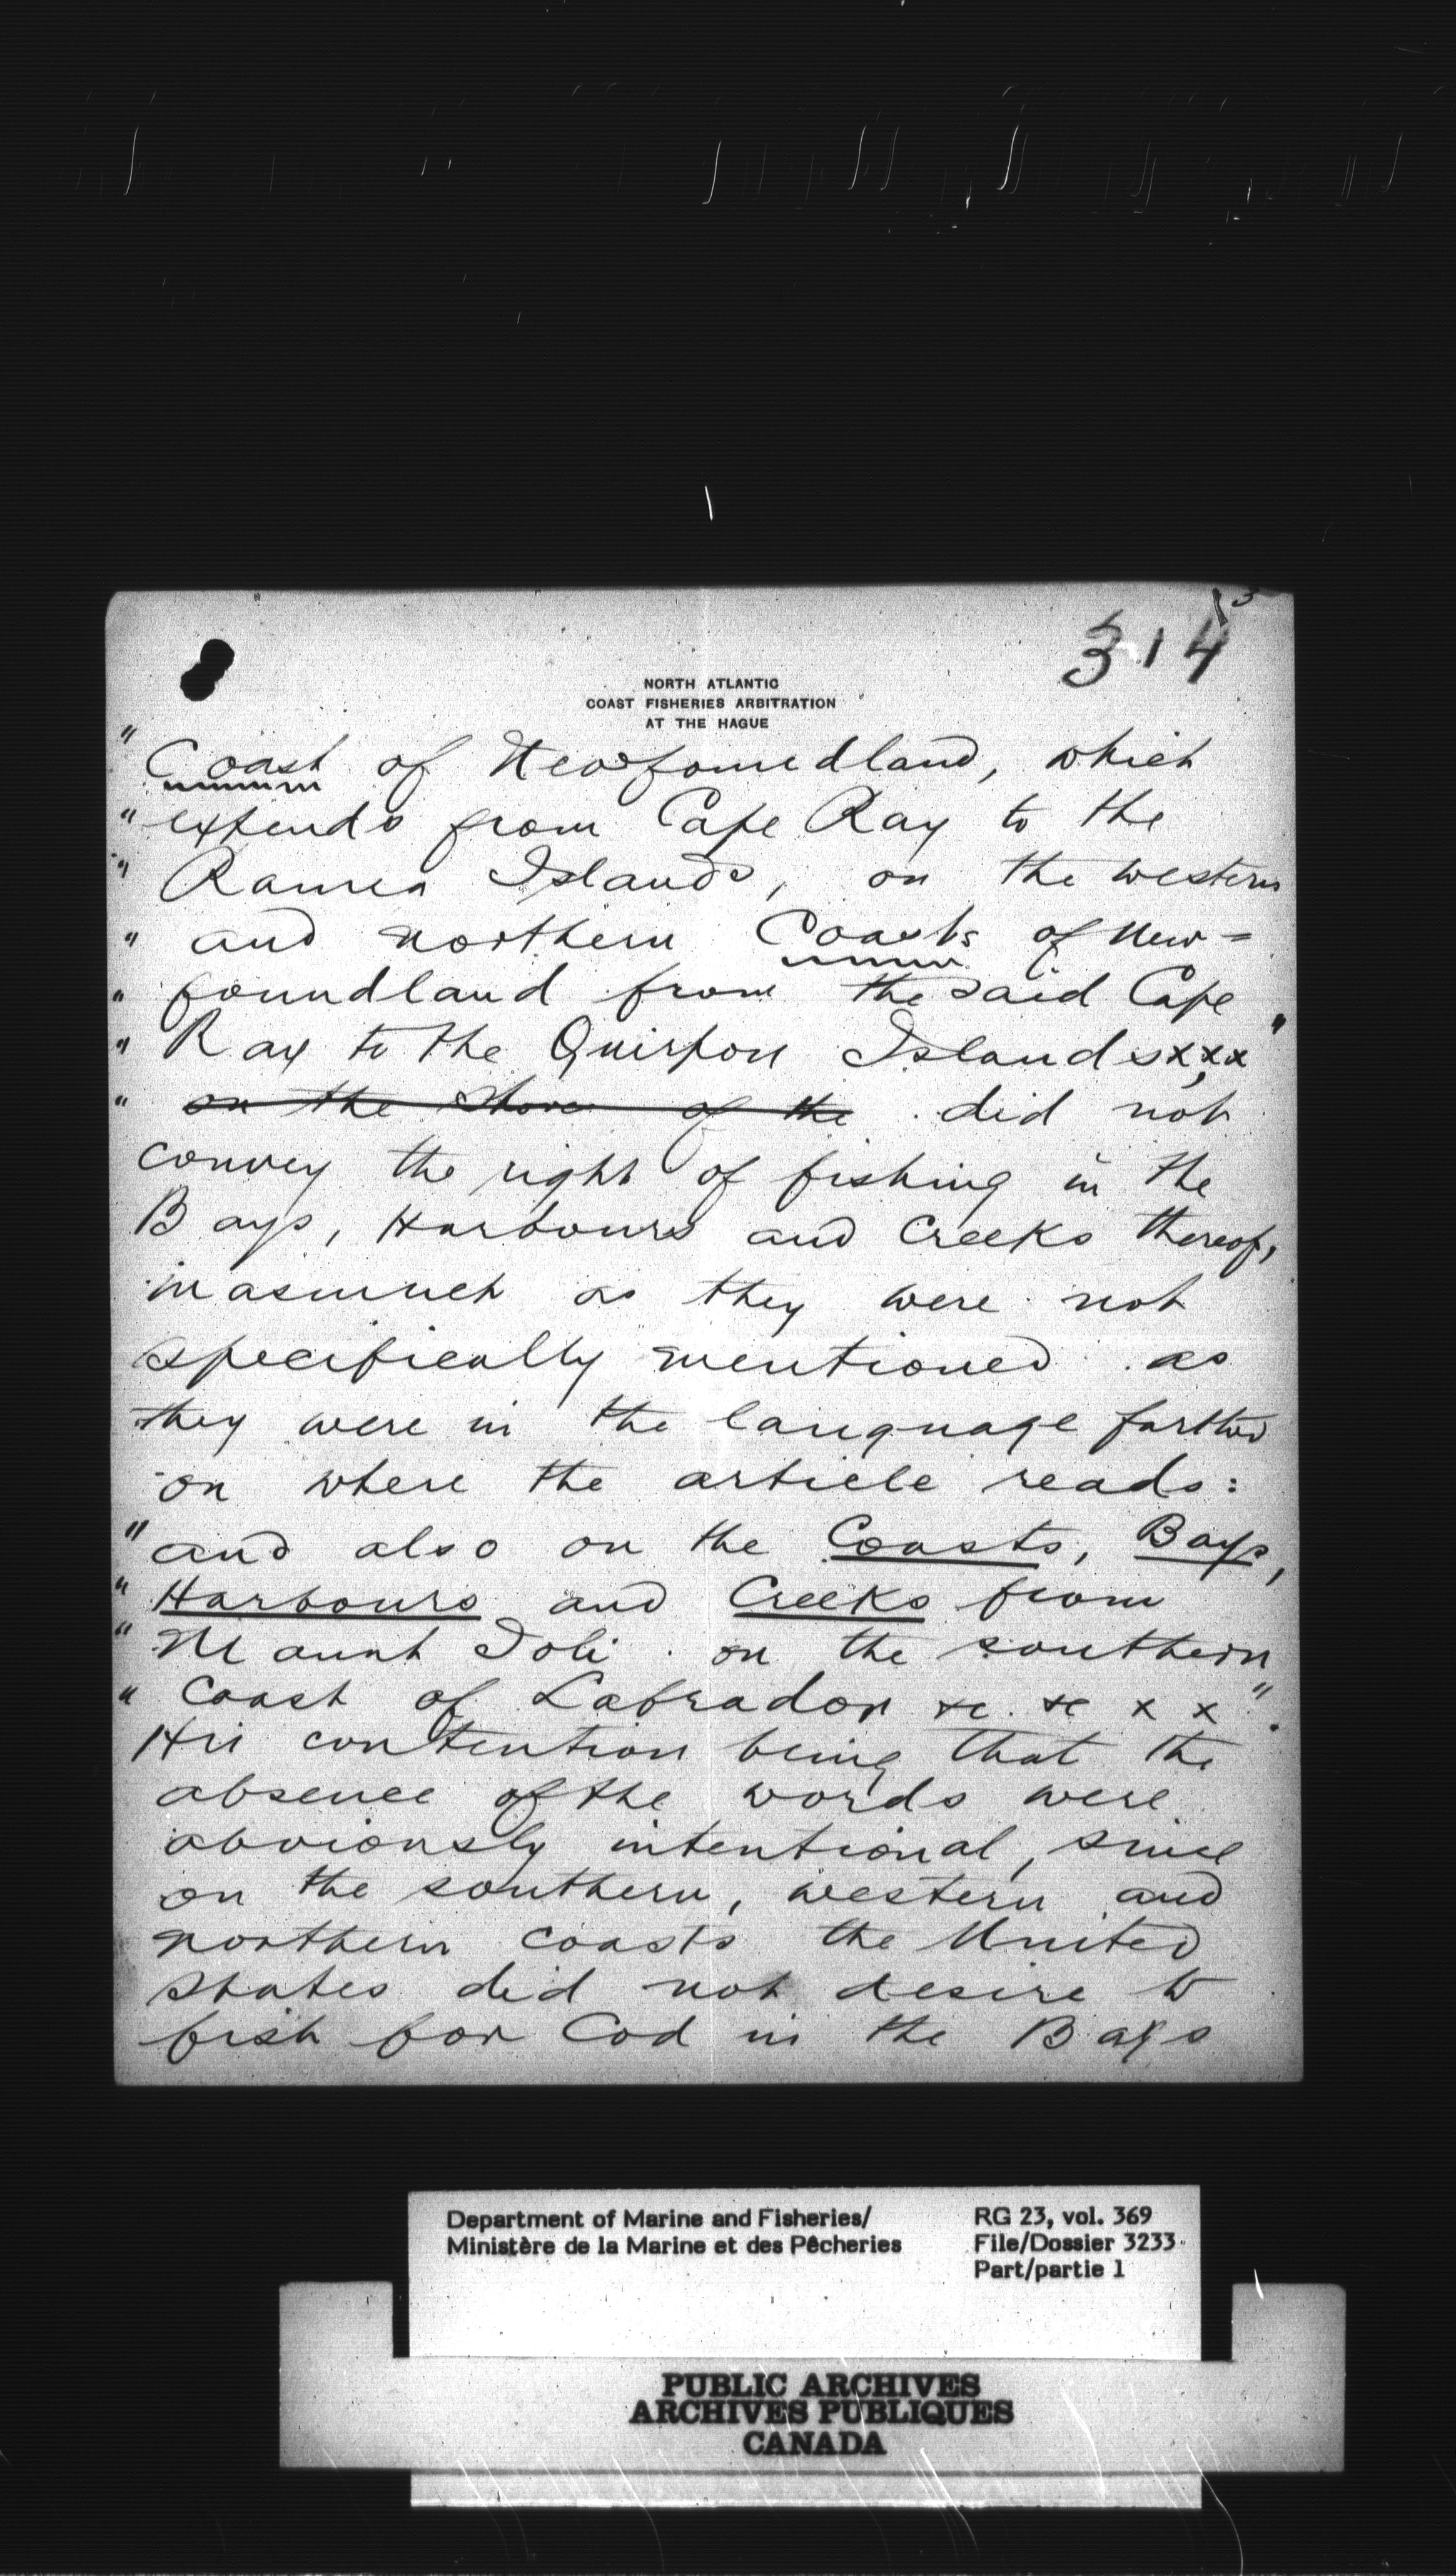 3
314
NORTH ATLANTIC
COAST FISHERIES ARBITRATION
AT THE HAGUE
" Coast of Newfoundland, which
" extends from Cape Ray to the
" Ramea Islands, on the western
" and northern Coasts of New=
" foundland from the said Cape
" Ray to the Quirpon Islands xxx "
" on the shore of the did not
convey the right of fishing in the
Bays, Harbours and Creeks thereof,
inasmuch as they were not
specifically mentioned as
they were in the language further
on where the article reads:
" and also on the Coasts, Bays,
" Harbours and Creeks from
" Mount Joli on the southern
" Coast of Labrador &c. &c x x ".
His contention being that the
absence of the words were
obviously intentional, since
on the southern, western and
northern coasts the United
States did not desire to
fish for Cod in the Bays
Department of Marine and Fisheries/
Ministère de la Marine et des Pêcheries
RG 23, vol. 369
File/Dossier 3233
Part/partie 1
PUBLIC ARCHIVES
ARCHIVES PUBLIQUES
CANADA